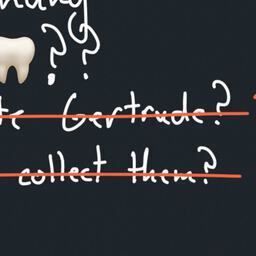 ??
Gertrude?
collect them?